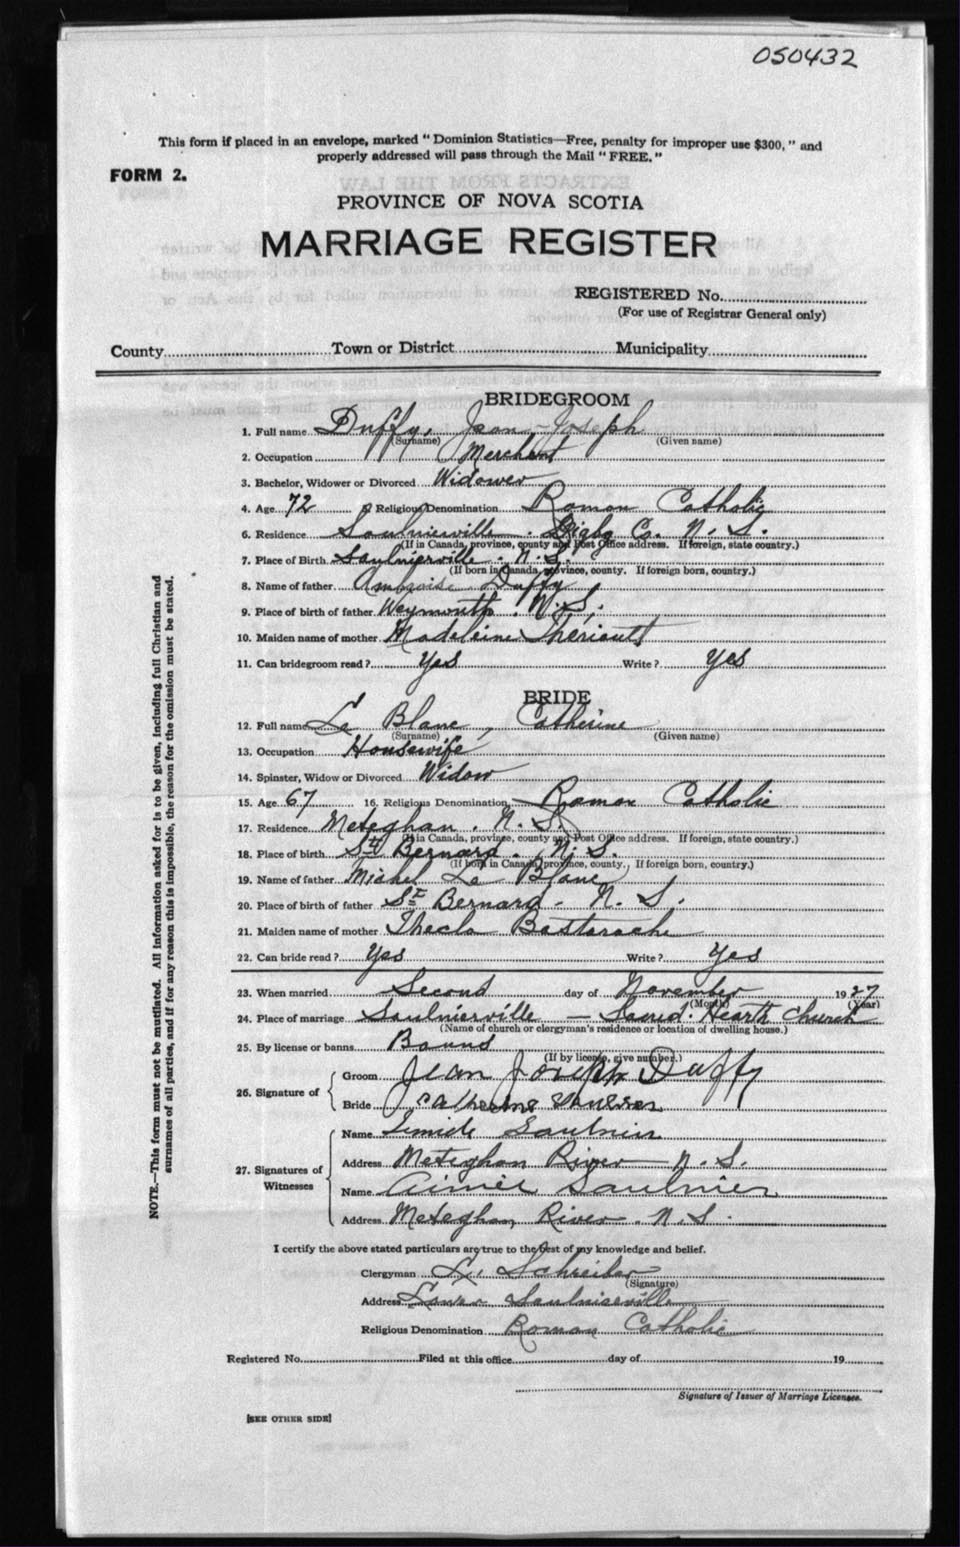 050432
This form if placed in an envelope, marked "Dominion Statistics—Free, penalty for improper use $300," and
properly addressed will pass through the Mail "FREE."
FORM 2.
PROVINCE OF NOVA SCOTIA
MARRIAGE REGISTER
REGISTERED No.
(For use of Registrar General only)
County Town or District Municipality
BRIDEGROOM
1. Full name Duffy, Jean-Joseph
(Surname) (Given name)
2. Occupation Merchant
3. Bachelor, Widower or Divorced Widower
4. Age 72 Religious Denomination Roman Catholic
6. Residence Saulnierville. Digby Co. N. S.
(If in Canada, province, county and Post Office address. If foreign, state country.)
7. Place of Birth Saulnierville. N. S.
(If born in Canada, province, county. If foreign born, country.)
8. Name of father Ambroise Duffy
9. Place of birth of father Weymouth. N. S.
10. Maiden name of mother Madeleine Theriault
11. Can bridegroom read? Yes Write? Yes
BRIDE
12. Full name Le Blanc, Catherine
(Surname) (Given name)
13. Occupation Housewife
14. Spinster, Widow or Divorced Widow
15. Age 67 16. Religious Denomination Roman Catholic
17. Residence Meteghan. N. S.
(If in Canada, province, county and Post Office address. If foreign, state country.)
18. Place of birth St Bernard. N. S.
(If born in Canada, province, county, If foreign born, country.)
19. Name of father Michel Le Blanc
20. Place of birth of father St Bernard - N. S.
21. Maiden name of mother Thecla Bastarache
22. Can bride read? Yes Write? Yes
23. When married Second day of November 1927
(Month) (Year)
24. Place of marriage Saulnierville — Sacred Heart Church
(Name of church or clergyman's residence or location of dwelling house.)
25. By license or banns Banns
(If by license, give number.)
26. Signature of
Groom Jean Joseph Duffy
Bride Catherine
27. Signatures of
Witnesses
Name Saulnier
Address Meteghan River N. S.
Name Aimée Saulnier
Address Meteghan River. N. S.
I certify the above stated particulars are true to the best of my knowledge and belief.
Clergyman Schreiber
(Signature)
Address Lower Saulnierville
Religious Denomination Roman Catholic
Registered No. Filed at this office day of 19
Signature of Issuer of Marriage Licenses.
[SEE OTHER SIDE]
NOTE.—This form must not be mutilated. All information asked for is to be given, including full Christian and
surnames of all parties, and if for any reason this is impossible, the reason for the omission must be stated.